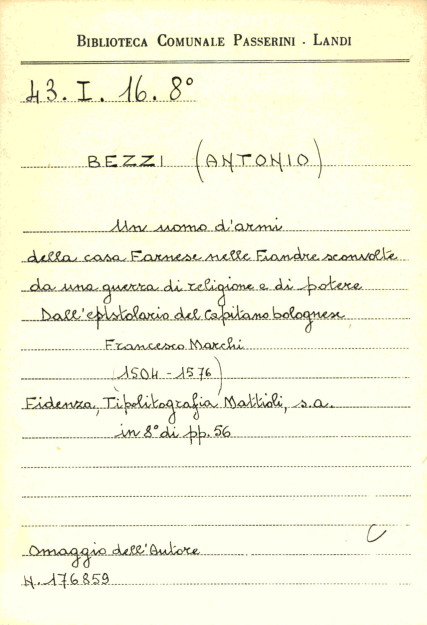 BIBLIOTECA COMUNALE PASSERINI - LANDI
43. I. 16. 8°
BEZZI (ANTONIO)
Un uomo d'armi
della casa Farnese nelle Fiandre sconvolte
da una guerra di religione e di potere
Dall'epistolario del Capitano bolognese
Francesco Marchi
(1504 - 1576)
Fidenza, Tipolitografia Mattioli, s.a.
in 8° di pp. 56
C
Omaggio dell'Autore
N. 176859